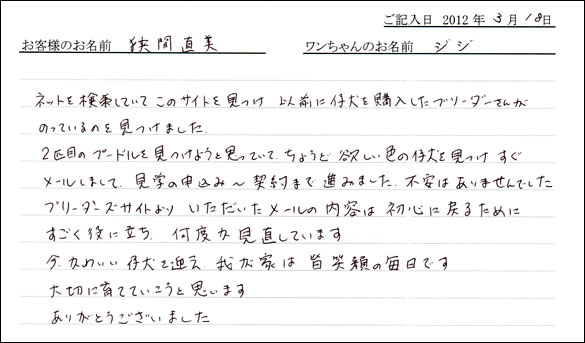 ご記入日 2012年3月18日
お客様のお名前 狭間直美 ワンちゃんのお名前 ジジ
ネットを検索していてこのサイトを見つけ 以前に仔犬を購入したブリーダーさんが
のっているのを見つけました。
2匹目のプードルを見つけようと思っていて、ちょうど欲しい色の仔犬を見つけ すぐ
メールしまして、見学の申込み〜契約まで進みました。不安はありませんでした
ブリーダーズサイトより いただいたメールの内容は 初心に戻るために
すごく役に立ち、何度か見直しています
今、かわいい仔犬を迎え、我が家は 皆笑顔の毎日です
大切に育てていこうと思います
ありがとうございました